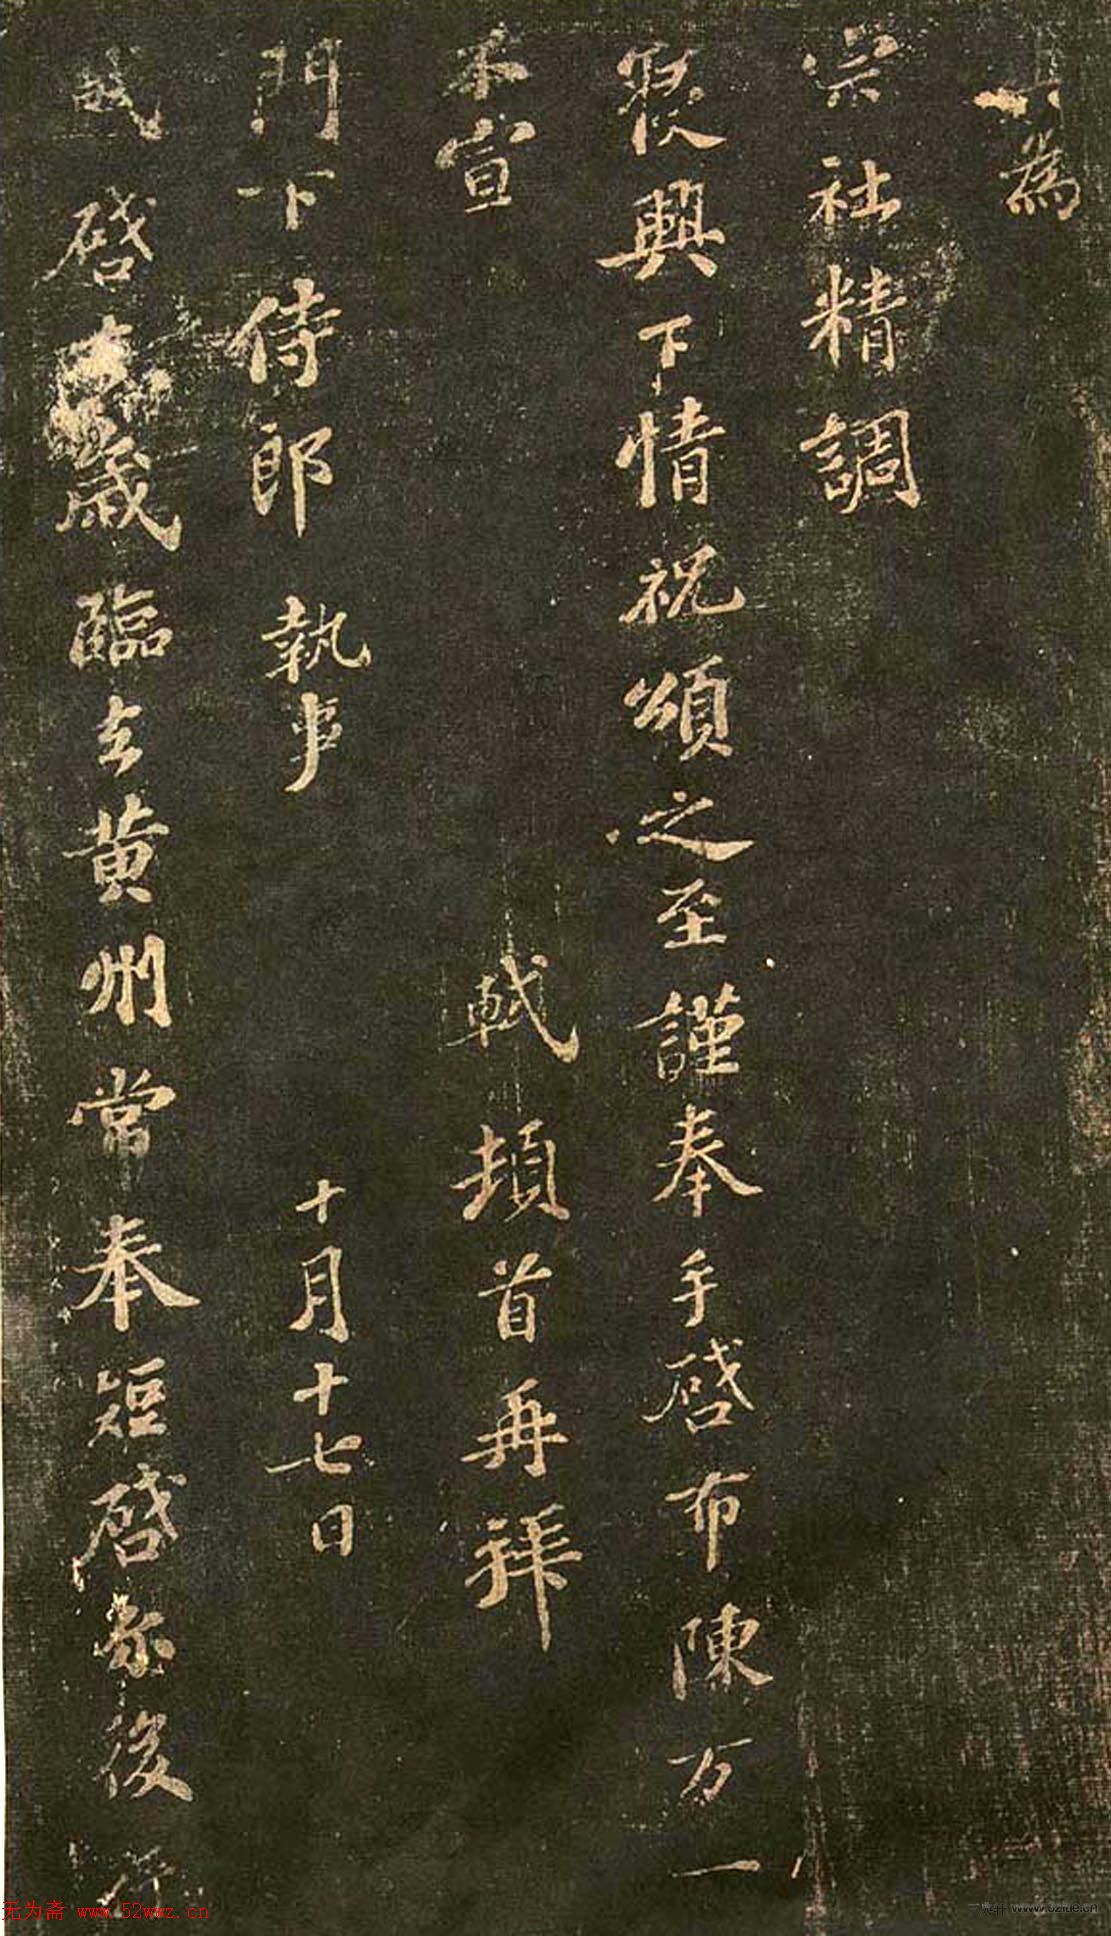 為
宗社精調
寢興下情祝頌之至謹奉手啓布陳万一
不宣
軾頓首再拜
門下侍郎 執事
十月十七日
軾啓 歲臨去黃州常奉短啓 後
无为斋 www.52wwz.cn